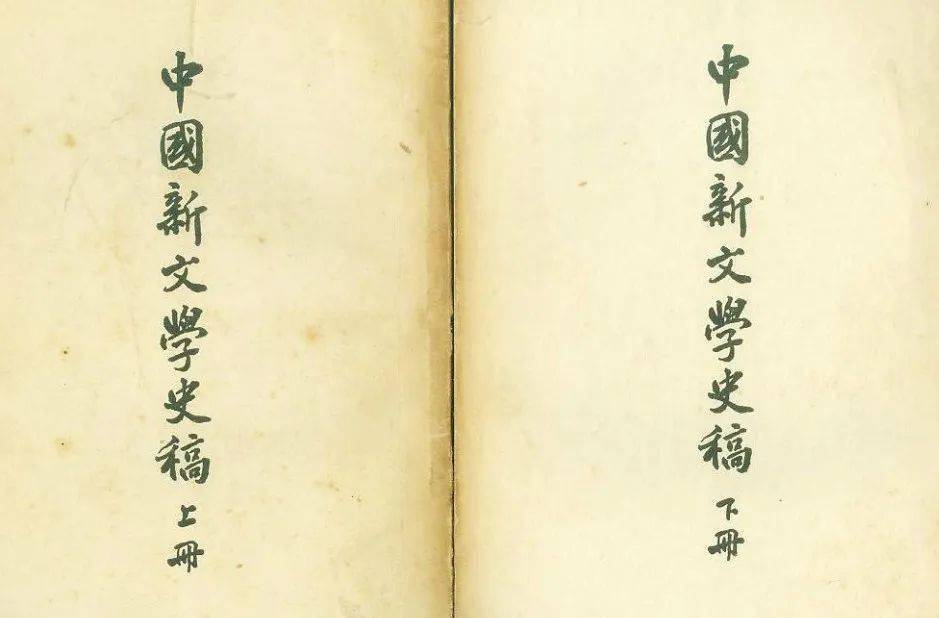 中國新文學史稿 上冊
中國新文學史稿 下冊